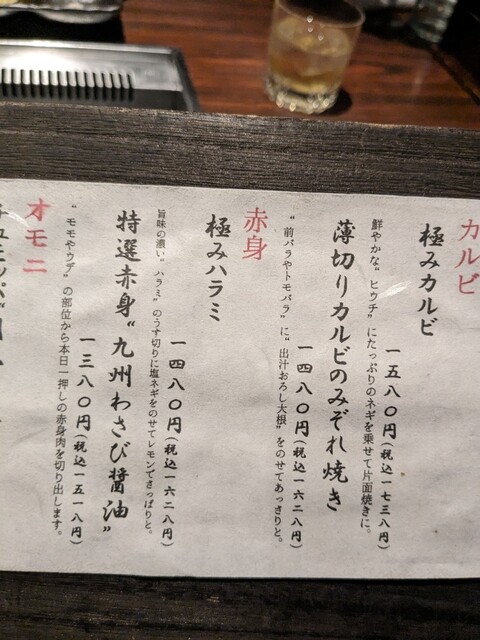 カルビ
極みカルビ
一五八〇円（税込一七三八円）
鮮やかな"ヒウチ"にたっぷりのネギを乗せて片面焼きに。
薄切りカルビのみぞれ焼き
一四八〇円（税込一六二八円）
"前バラやトモバラ"に"出汁おろし大根"をのせてあっさりと。
赤身
極みハラミ
一四八〇円（税込一六二八円）
旨味の濃い"ハラミ"のうす切りに塩ネギをのせてレモンでさっぱりと。
特選赤身"九州わさび醤油"
一三八〇円（税込一五一八円）
"モモやウデ"の部位から本日一押しの赤身肉を切り出します。
オモニ